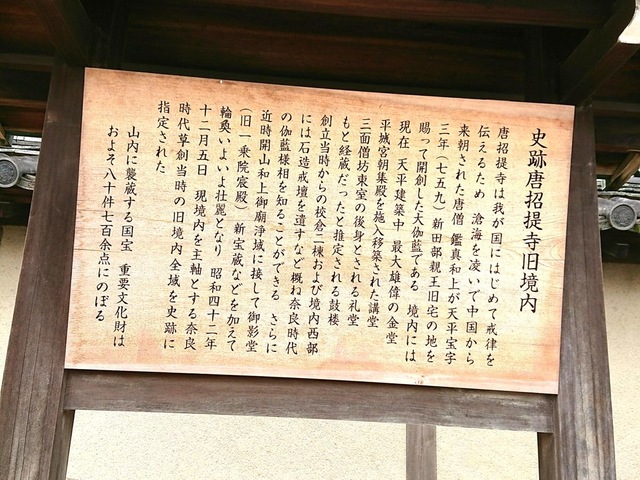 史跡唐招提寺旧境内
唐招提寺は我が国にはじめて戒律を
伝えるため 滄海を凌いで中国から
来朝された唐僧 鑑真和上が天平宝字
三年（七五九）新田部親王旧宅の地を
賜って開創した大伽藍である 境内には
現在 天平建築中 最大雄偉の金堂
平城宮朝集殿を施入移築された講堂
三面僧坊東室の後身とされる礼堂
もと経蔵だったと推定される鼓楼
創立当時からの校倉二棟および境内西部
には石造戒壇を遺すなど概ね奈良時代
の伽藍様相を知ることができる さらに
近時開山和上御廟浄域に接して御影堂
（旧一乗院宸殿） 新宝蔵などを加えて
輪奐いよいよ壮麗となり 昭和四十二年
十二月五日 現境内を主軸とする奈良
時代草創当時の旧境内全域を史跡に
指定された
山内に襲蔵する国宝 重要文化財は
およそ八十件七百余点にのぼる